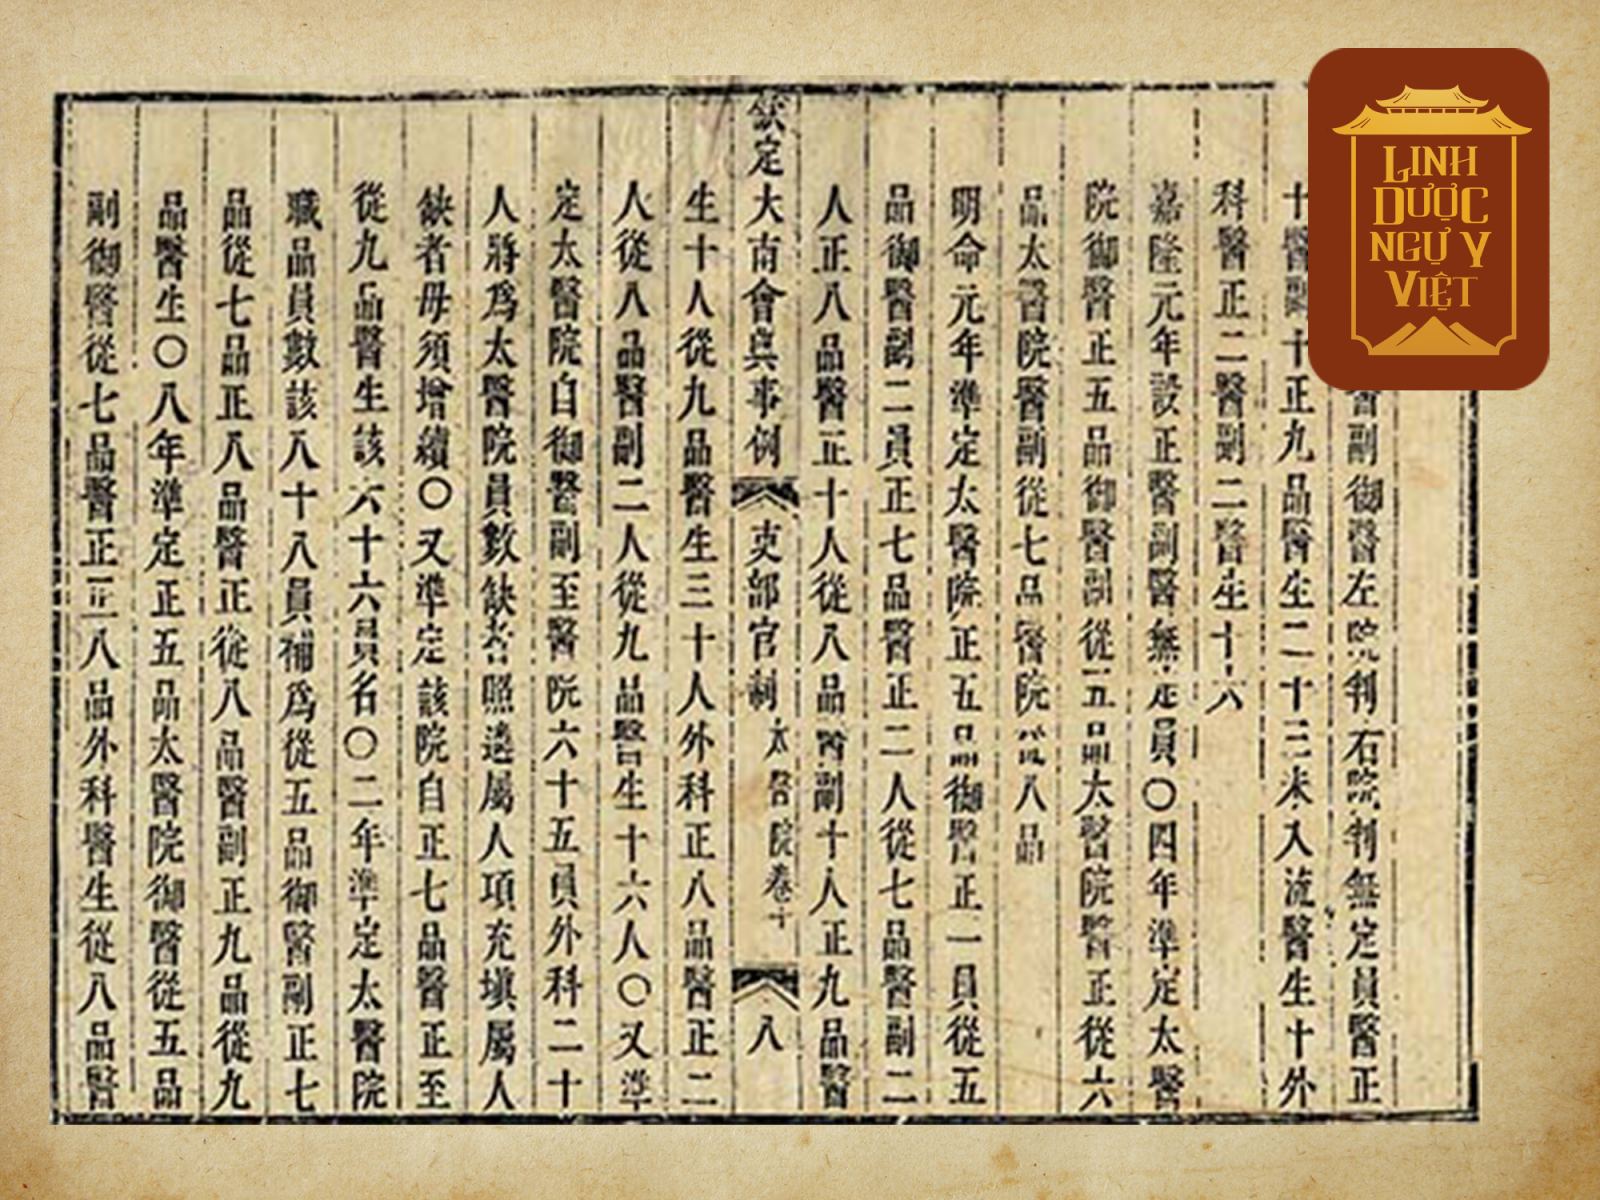 醫副御醫左院判右院判無定員醫正
十醫副十正九品醫生二十三未入流醫生十外
科醫正二醫副二醫生十六
嘉隆元年設正醫副醫無定員〇四年準定太醫
院御醫正五品御醫副從五品太醫院醫正從六
品太醫院醫副從七品醫院從八品
明命元年準定太醫院正五品御醫正一員從五
品御醫副二員正七品醫正二人從七品醫副二
人正八品醫正十人從八品醫副十人正九品醫
欽定大南會典事例 吏部官制 太醫院 卷十 八
生十人從九品醫生三十人外科正八品醫正二
人從八品醫副二人從九品醫生十六人〇又準
定太醫院自御醫副至醫院六十五員外科二十
人將為太醫院員數缺者照遴屬人項充塡屬人
缺者毋須增續〇又準定該院自正七品醫正至
從九品醫生該六十六員名〇二年準定太醫院
職品員數該八十八員補為從五品御醫副正七
品從七品正八品醫正從八品醫副正九品從九
品醫生〇八年準定正五品太醫院御醫從五品
副御醫從七品醫正正八品外科醫生從八品醫
LINH
DƯỢC
NGỰ Y
VIỆT